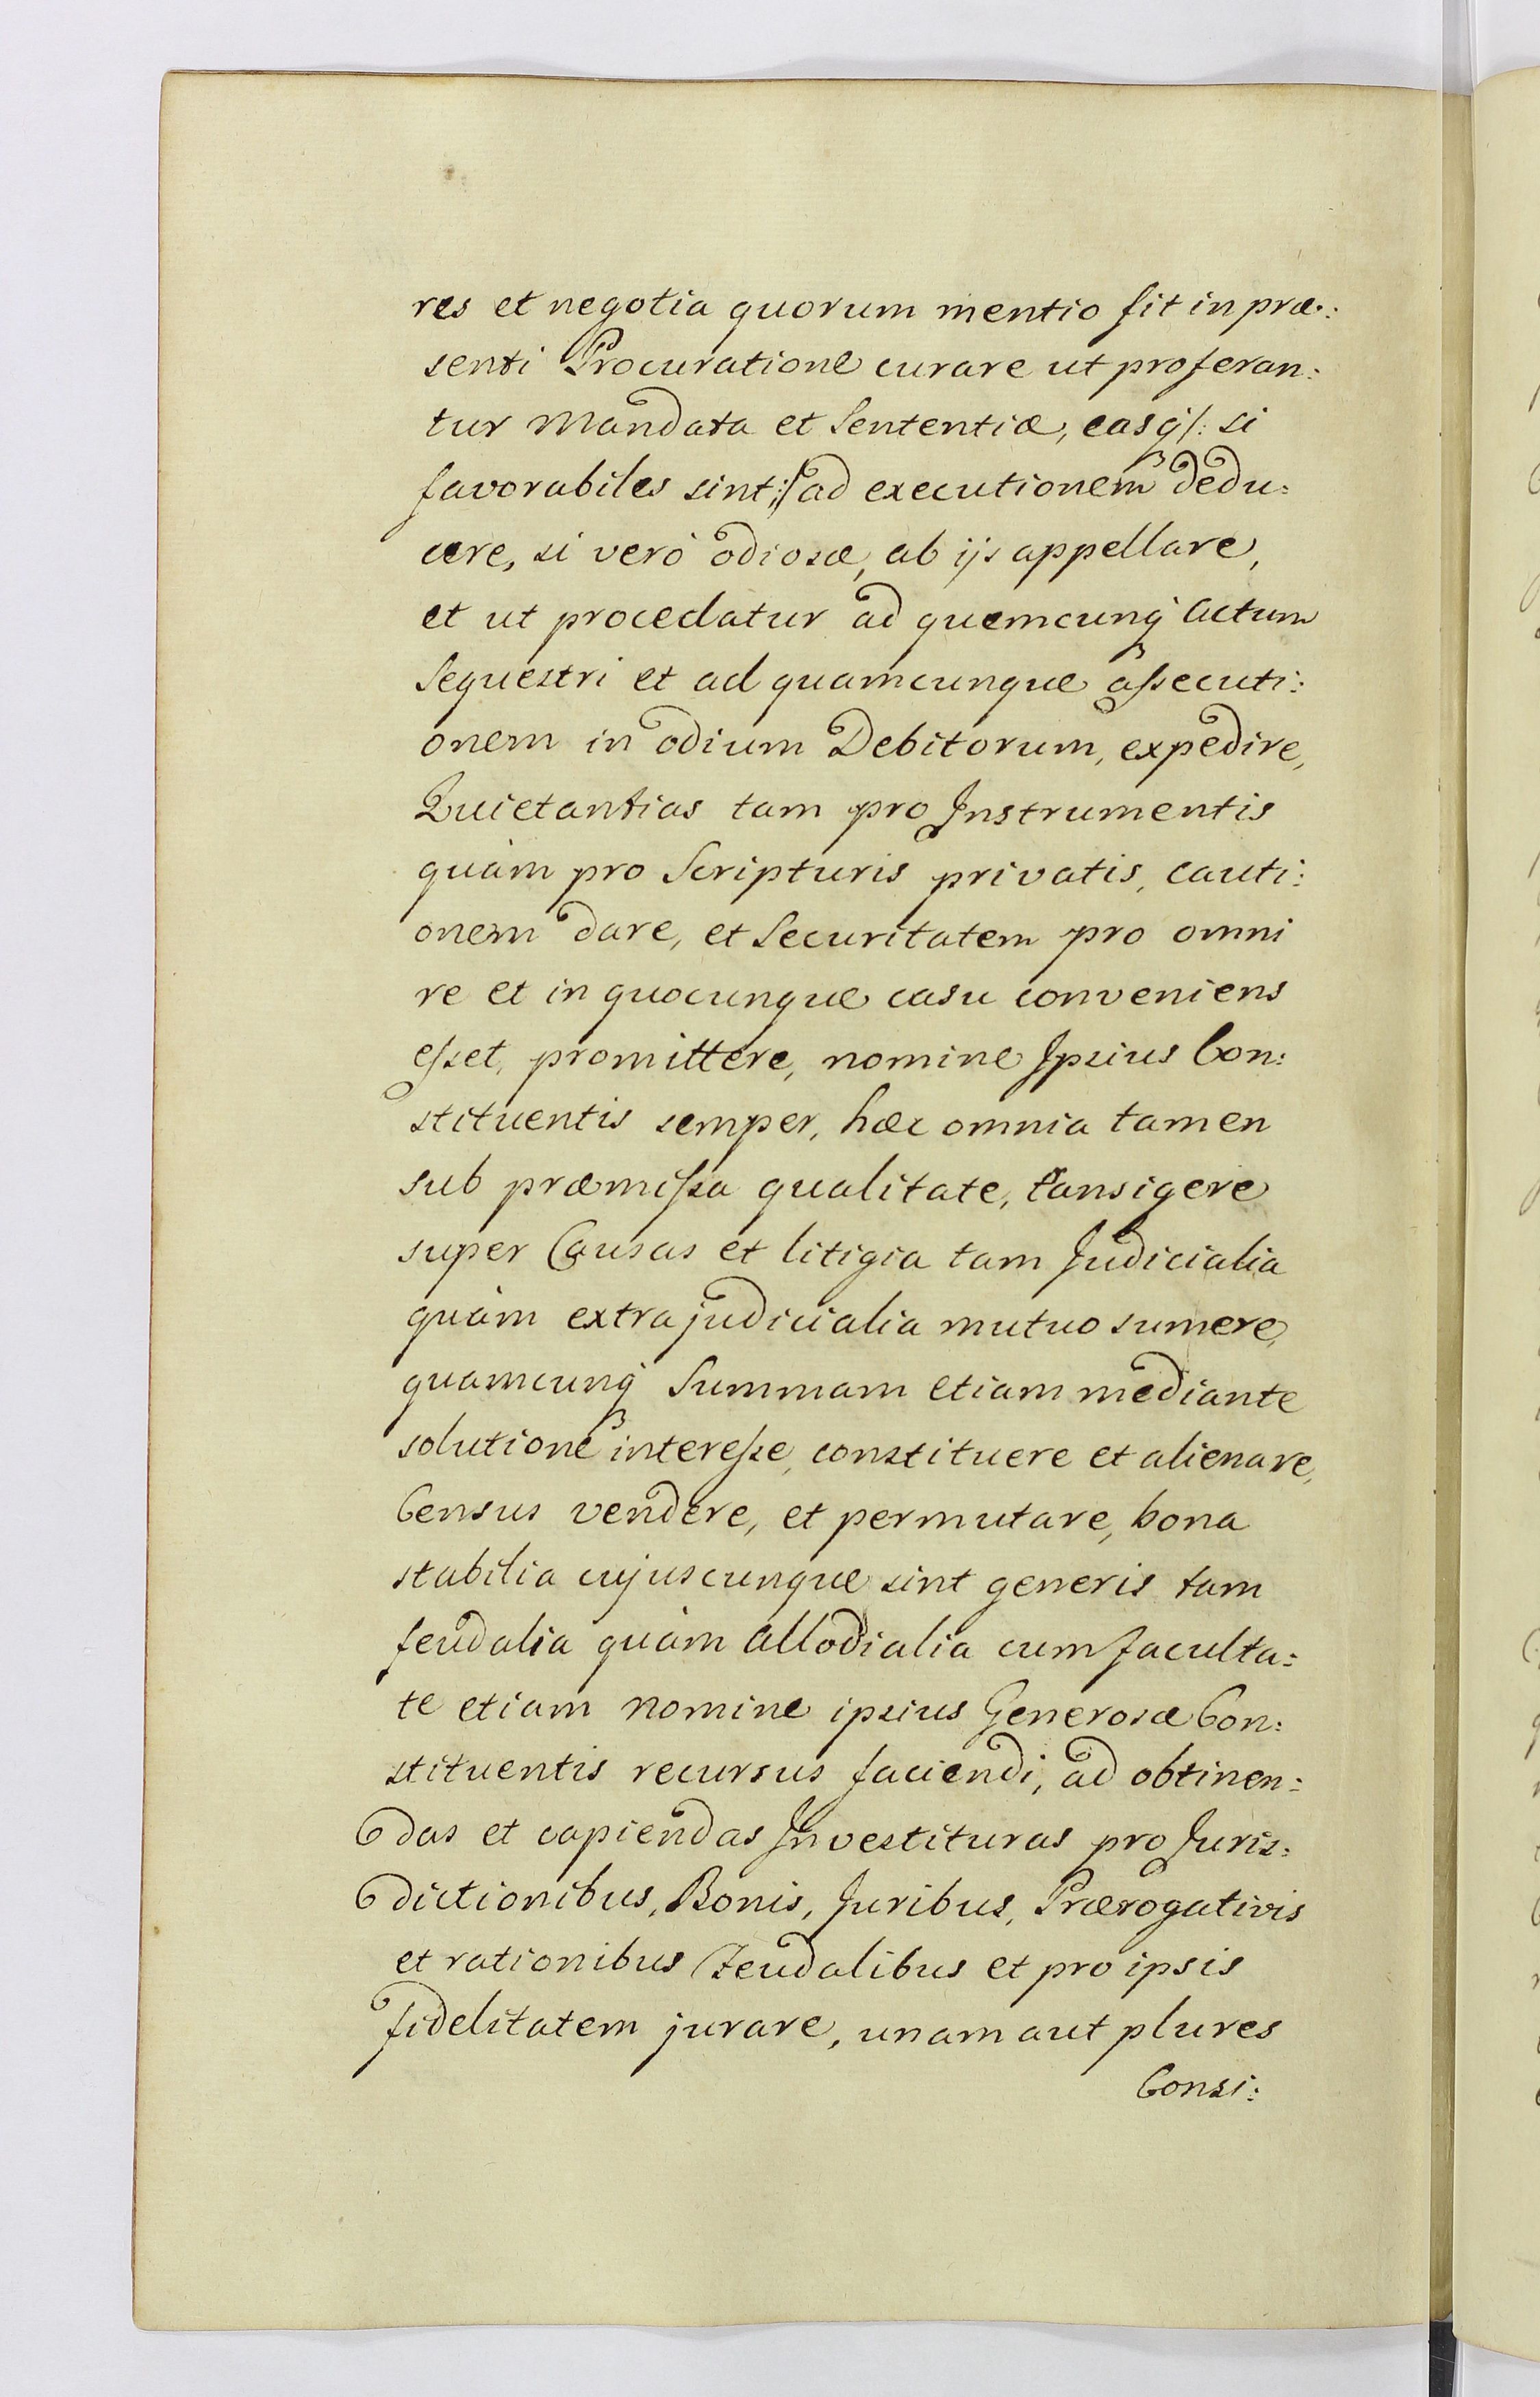 res et negotia quorum mentio fit in præ:
senti Procuratione curare ut proferan:
tur Mandata et Sententiæ, easq́ /: si
favorabiles sint :/ ad executionem dedu:
cere, si verò odiosæ, ab ijs appellare,
et ut procedatur ad quemcunq́ Actum
Sequestri et ad quamcunque assecuti:
onem in odium Debitorum, expedire,
Quietantias tam pro Instrumentis
quàm pro Scripturis privatis, cauti:
onem dare, et Securitatem pro omni
re et in quocunque casu conveniens
esset, promittere, nomine Ipsius Con:
stituentis semper, hæc omnia tamen
sub præmissa qualitate, tansigere
super Causas et litigia tam Judicialia
quàm extrajudicialia mutuo sumere,
quamcunq́ Summam etiam mediante
solutione interesse, constituere et alienare,
Census vendere, et permutare, bona
stabilia cujuscunque sint generis tam
feudalia quàm Allodialia cum faculta:
te etiam nomine ipsius Generosæ Con:
stituentis recursus faciendi, ad obtinen:
das et capiendas Investituras pro Juris:
dictionibus, Bonis, Juribus, Prærogativis
et rationibus Feudalibus et pro ipsis
fidelitatem jurare, unam aut plures
Consi: